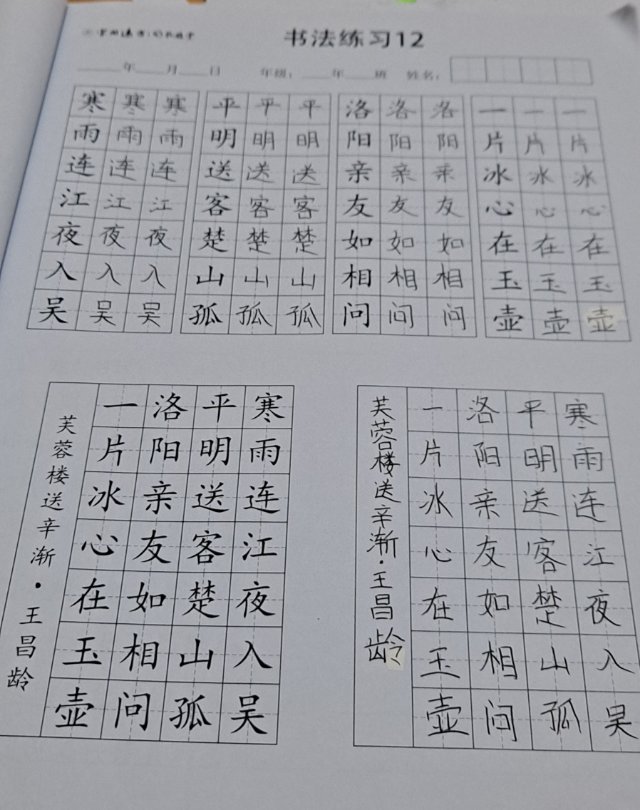 书法练习12
年 月 日 年级： 年 班 姓名：
寒寒寒 平平平 洛洛洛 一一一
雨雨雨 明明明 阳阳阳 片片片
连连连 送送送 亲亲亲 冰冰冰
江江江 客客客 友友友 心心心
夜夜夜 楚楚楚 如如如 在在在
入入入 山山山 相相相 玉玉玉
吴吴吴 孤孤孤 问问问 壶壶壶
寒雨连江夜入吴
平明送客楚山孤
洛阳亲友如相问
一片冰心在玉壶
芙蓉楼送辛渐·王昌龄
寒雨连江夜入吴
平明送客楚山孤
洛阳亲友如相问
一片冰心在玉壶
芙蓉楼送辛渐·王昌龄